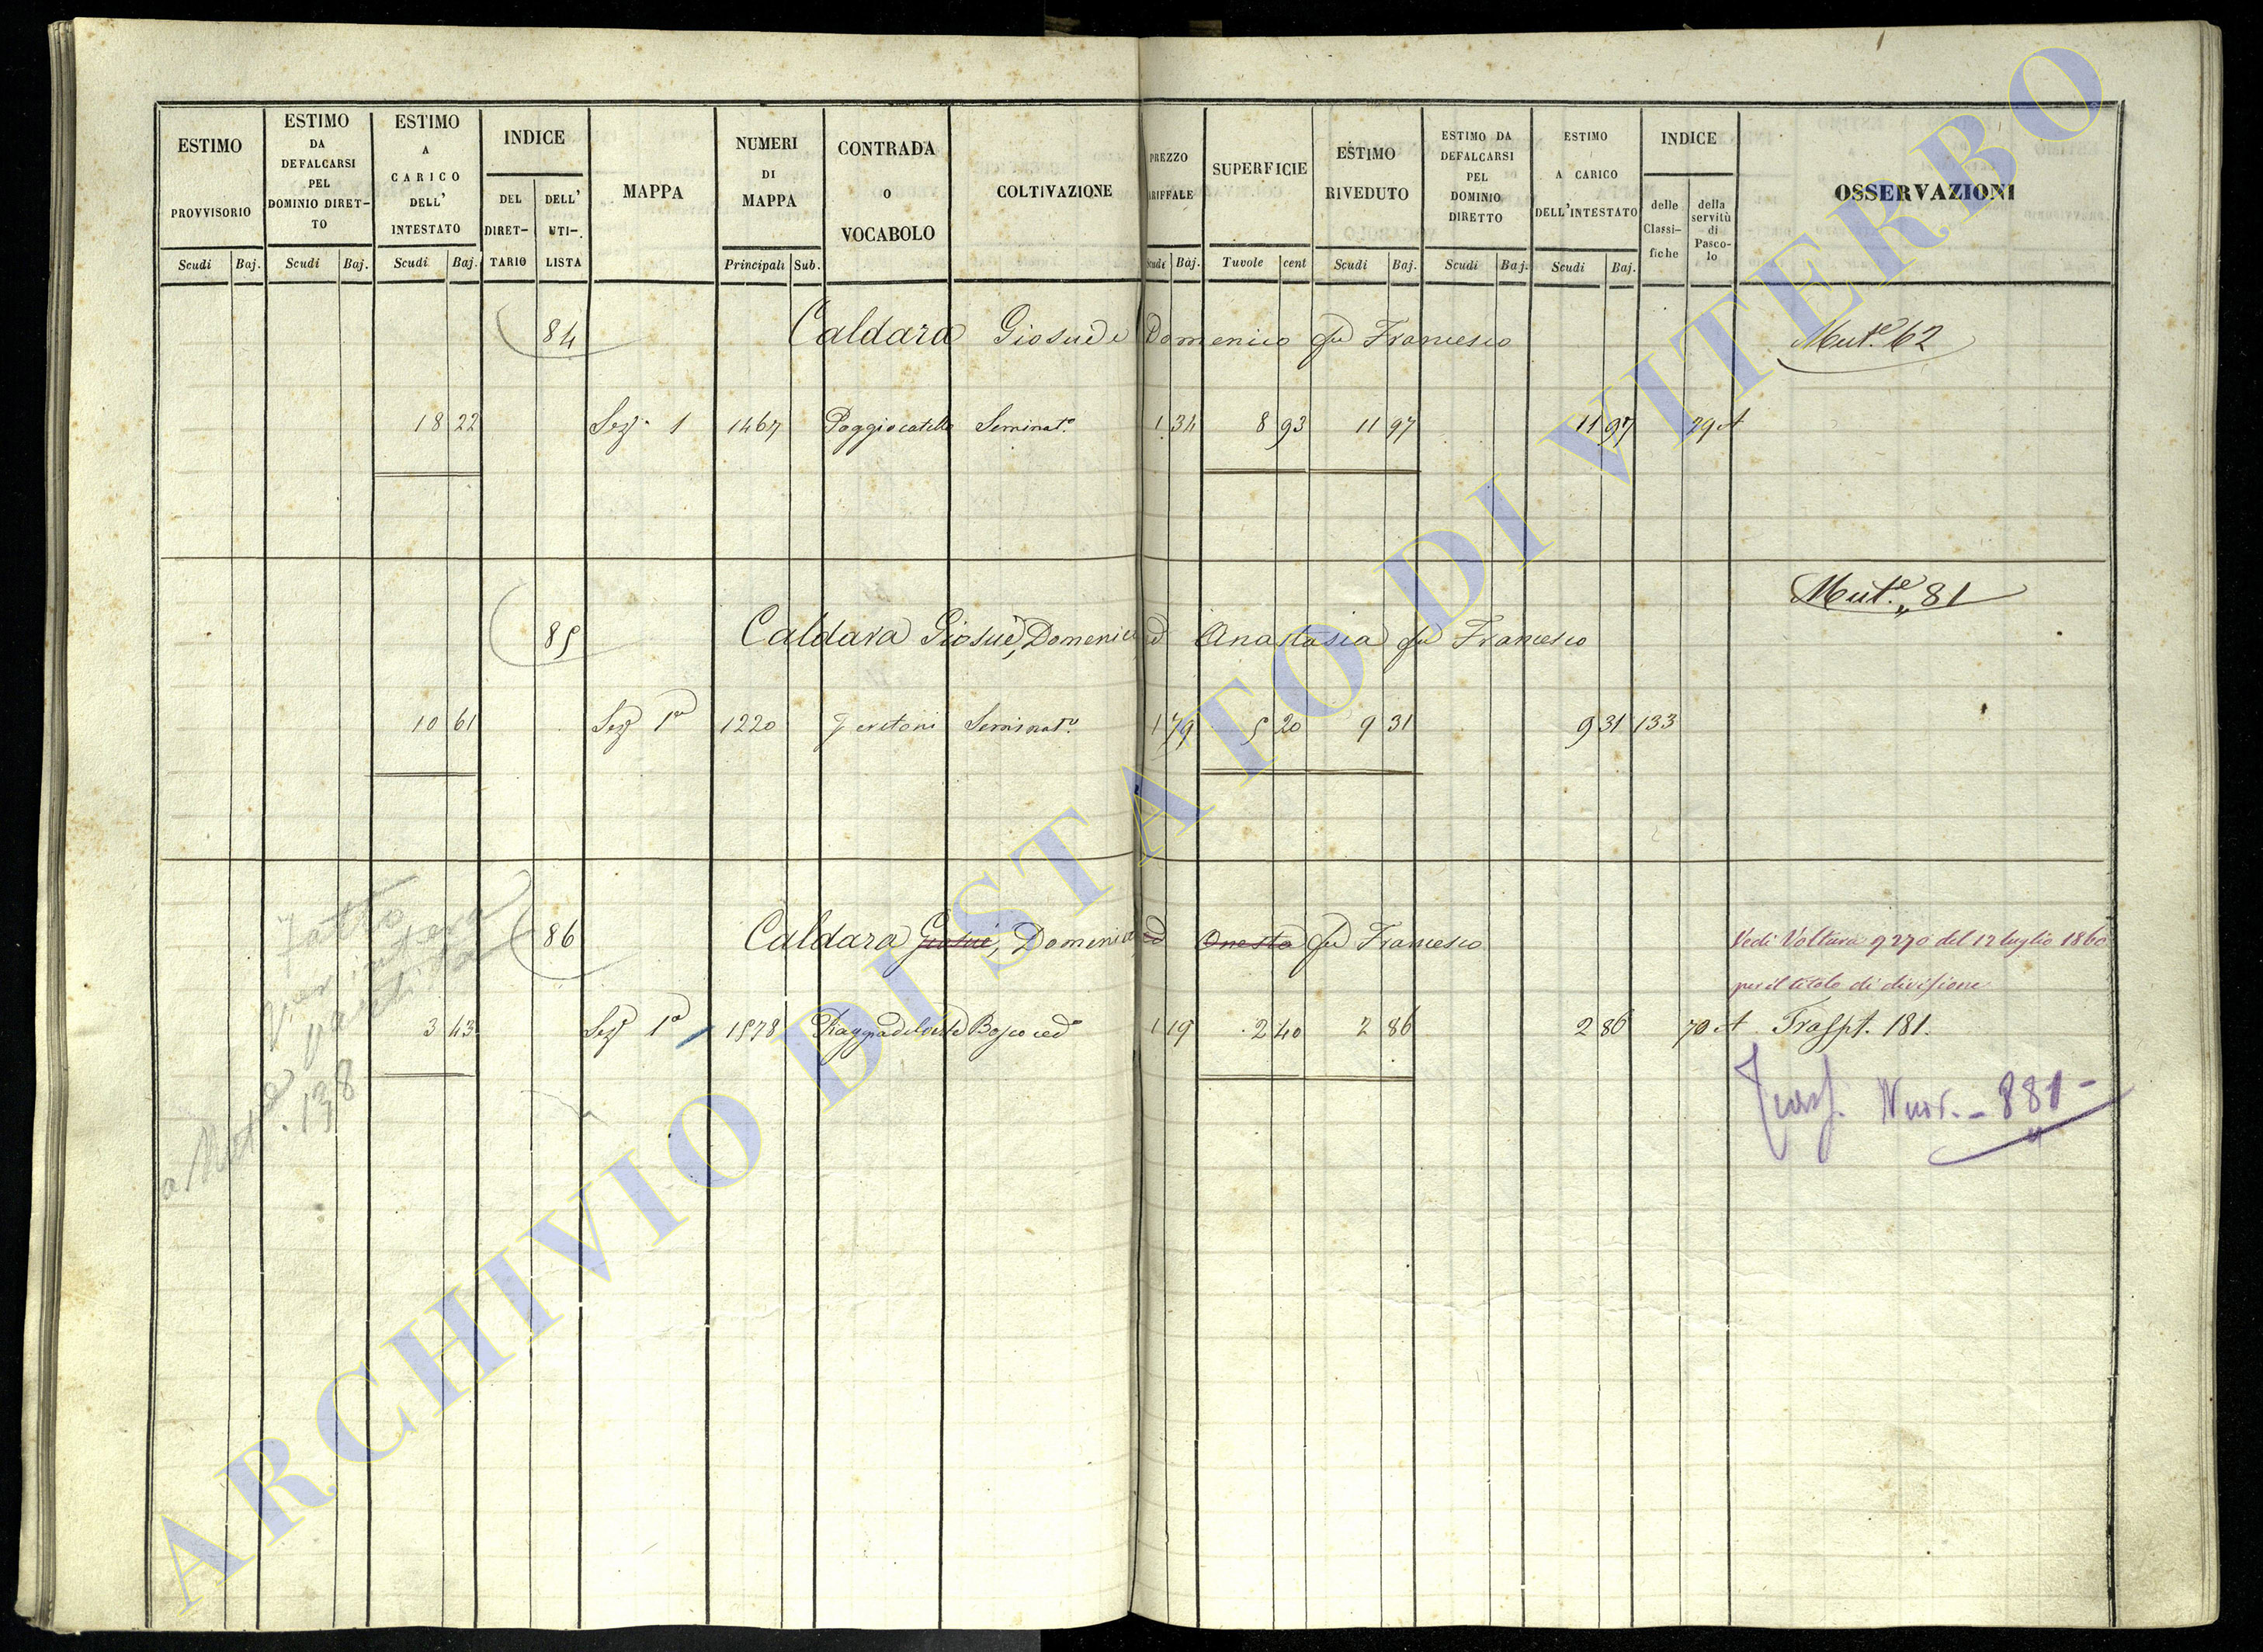 ESTIMO PROVVISORIO
Scudi Baj.
ESTIMO DA DEFALCARSI PEL DOMINIO DIRET-TO
Scudi Baj.
ESTIMO A CARICO DELL' INTESTATO
Scudi Baj.
INDICE
DEL DIRET-TARIO
DELL' UTI-LISTA
MAPPA
NUMERI DI MAPPA
Principali Sub.
CONTRADA O VOCABOLO
COLTIVAZIONE
PREZZO ARIFFALE
Scudi Baj.
SUPERFICIE
Tavole cent
ESTIMO RIVEDUTO
Scudi Baj.
ESTIMO DA DEFALCARSI PEL DOMINIO DIRETTO
Scudi Baj.
ESTIMO A CARICO DELL'INTESTATO
Scudi Baj.
INDICE
delle Classi-fiche
della servitù di Pasco-lo
OSSERVAZIONI
84 Caldara Giosuè e Domenico fu Francesco Mut.e 62
18 22 Sez. 1 1467 Poggiocatillo Seminat.o 1 34 8 93 11 97 11 97 29 A
Mut.e 81
85 Caldara Giosuè, Domenico ed Anastasia fu Francesco
10 61 Sez 1a 1220 Seminat.o 1 79 5 20 9 31 9 31 133
86 Caldara Giosuè, Domenico ed Onesta fu Francesco
Vedi Voltura 9270 del 12 luglio 1860
per il titolo di divisione
3 43 Sez 1a 1578 Bosco ced.o 1 19 2 40 2 86 2 86 70 A Traspt. 181.
Nuov. - 881 -
Fatto
per intera
partita
a Mut.e 138
ARCHIVIO DI STATO DI VITERBO